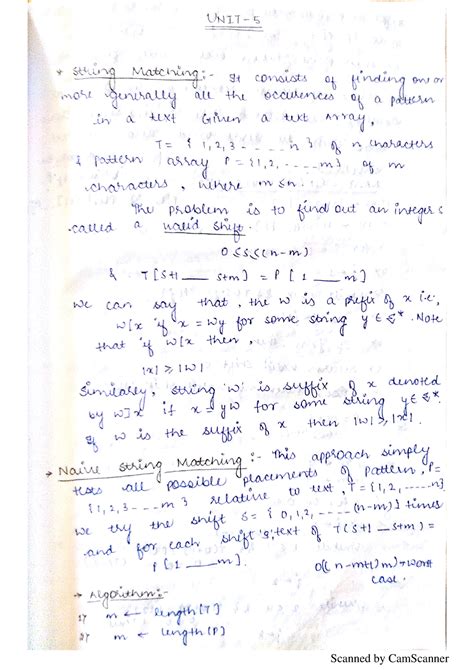 UNIT-5
* String Matching:- It consists of finding one or
more generally all the occurences of a pattern
in a text Given a text array,
T = { 1, 2, 3 - - - - n } of n characters
& pattern array P = {1, 2, - - - - m} of m
characters, where m ≤ n.
The problem is to find out an integer s
called a valid shift.
0 ≤ s ≤ (n-m)
& T[S+1 __ S+m] = P [ 1 __ m]
We can say that, the W is a prefix of x i.e,
W[x if x = Wy for some string y ∈ Σ*. Note
that if W[x then,
|x| ≥ |W|
Similarly, string 'W' is suffix of x denoted
by W]x if x = yW for some string y ∈ Σ*.
If W is the suffix of x then |W| ≥ |x|.
* Naive String Matching:- This approach simply
tests all possible placements of pattern, P=
{1, 2, 3 - - - m } relative to text, T = {1, 2, - - - - n}
we try the shift S = { 0, 1, 2, - - - - (n-m)} times
and for each shift 's', text of T(S+1 _ S+m) =
P [ 1 __ m].
O((n-m+1)m) → worst
case.
* Algorithm:-
1) n ← length[T]
2) m ← length[P]
Scanned by CamScanner